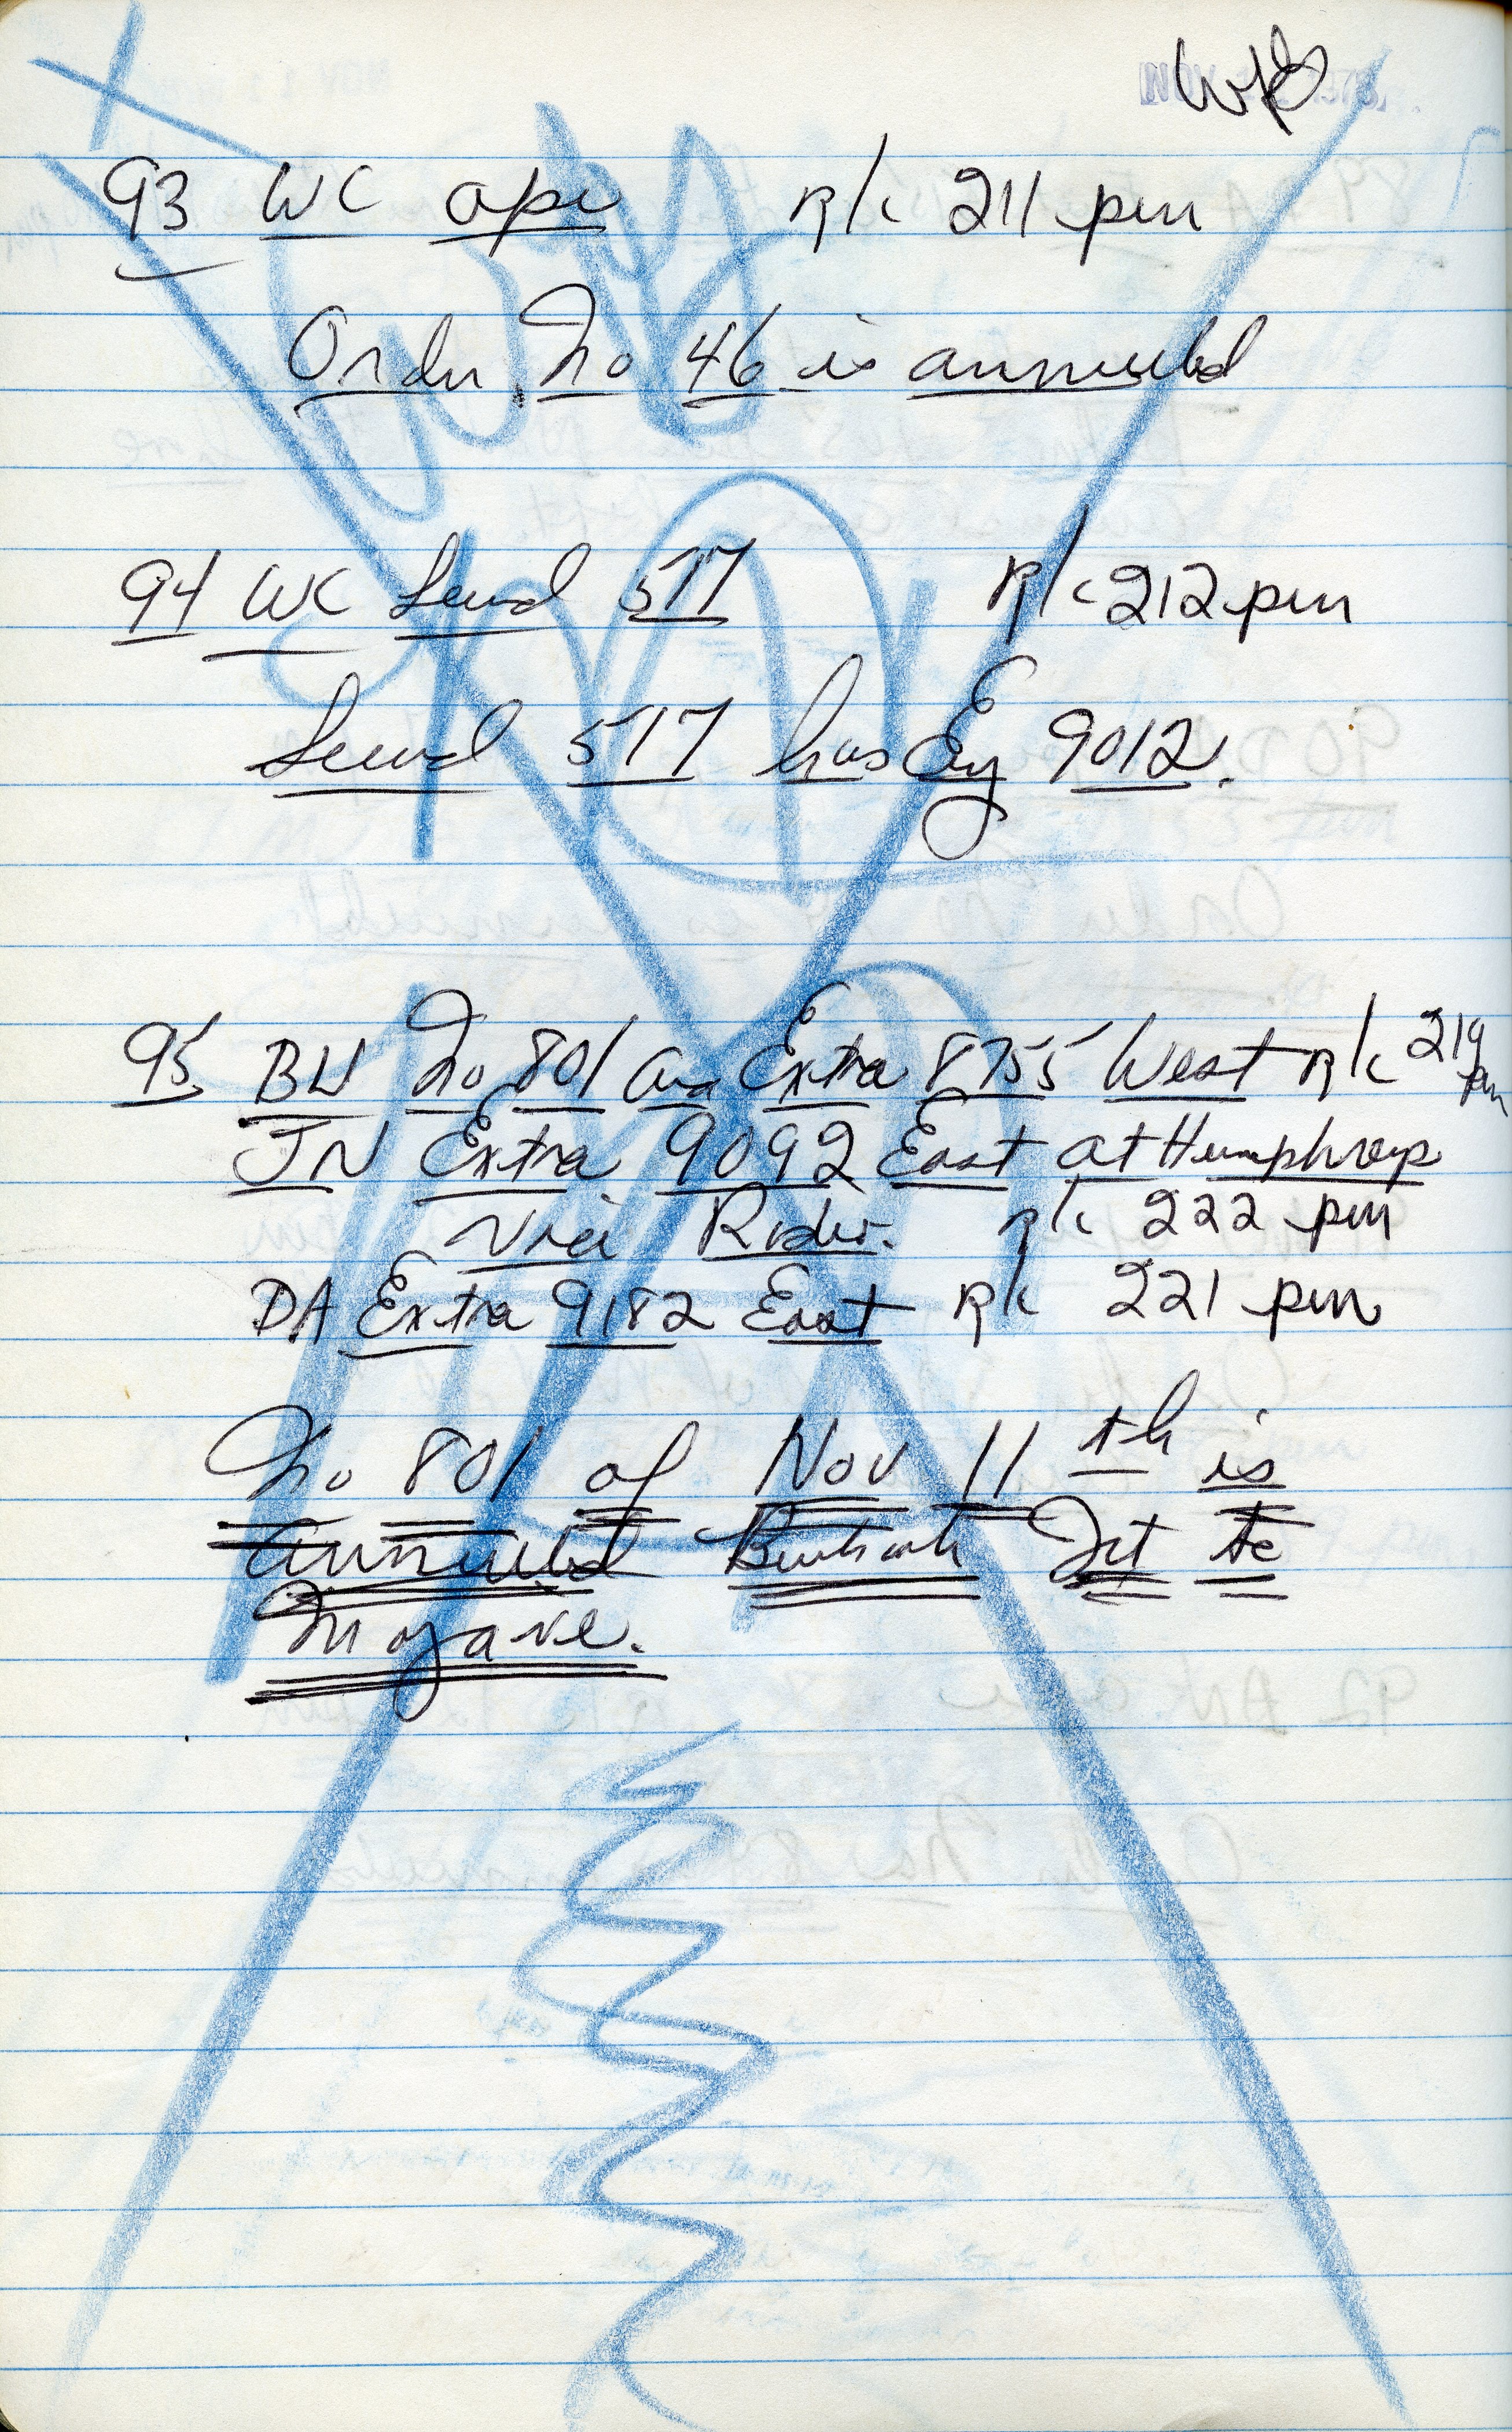 93 WC opr R/c 211 pm
Order No 46 is annulled
94 WC Second 517 R/c 212 pm
Second 517 has Eng 9012.
95 BU No 801 and Extra 8755 West R/c 219 pm
JN Extra 9092 East at Humphreys
Via Rider. R/c 222 pm
DA Extra 9182 East R/c 221 pm
No 801 of Nov 11 th is
annulled Burbank Jct to
Mojave.